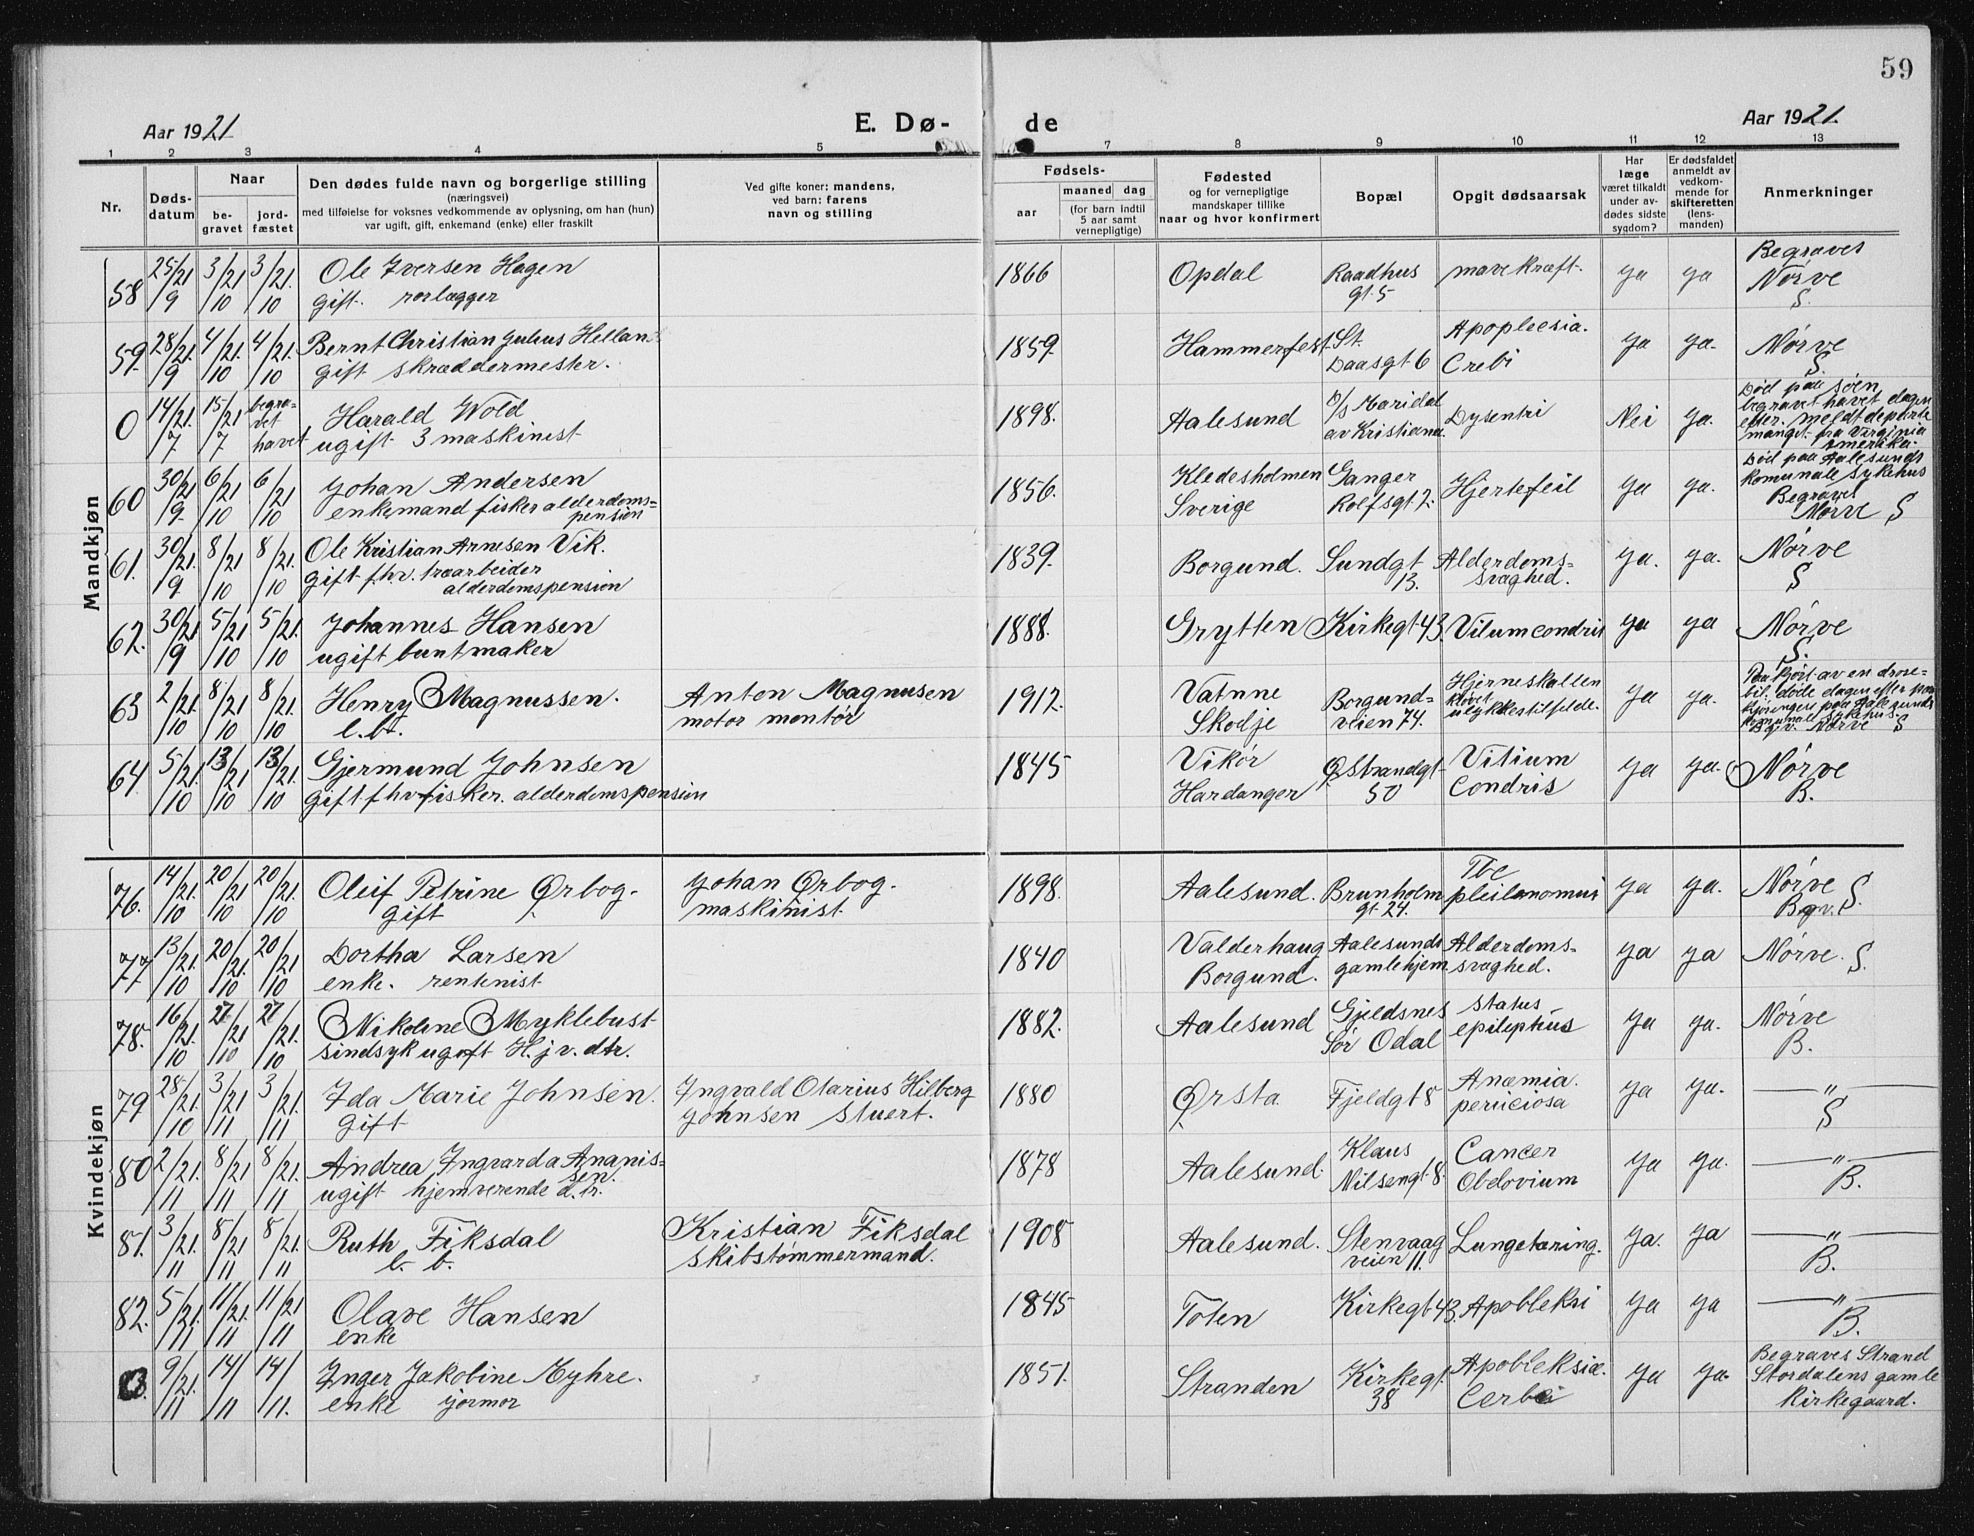 59
Aar 1921. E. Dø- de Aar 1921.
1 2 3 4 5 7 8 9 10 11 12 13
Nr. Dødsdatum Naar begravet jordfæstet
Den dødes fulde navn og borgerlige stilling
(næringsvei)
med tilføielse for voksnes vedkommende av oplysning, om han (hun)
var ugift, gift, enkemand (enke) eller fraskilt
Ved gifte koner: mandens,
ved barn: farens
navn og stilling
Fødsels-
aar maaned dag
(for barn indtil
5 aar samt
vernepligtige)
Fødested
og for vernepligtige
mandskaper tillike
naar og hvor konfirmert
Bopæl
Opgit dødsaarsak
Har
læge
været tilkaldt
under av-
dødes sidste
sygdom?
Er dødsfaldet
anmeldt av
vedkom-
mende for
skifteretten
(lens-
manden)
Anmerkninger
Mandkjøn
58 25/9 21 3/10 21 3/10 21. Ole Iversen Hagen 1866 Opdal Raadhus mavekræft. ya ya Begraves
gift. rørlægger gt. 5 Nørve
S.
59. 28/9 21. 4/10 21. 4/10 21. Bernt Christian Julius Hellan 1859. Hammerfest St. Apopleesia. ya ya. Nørve
gift skræddermester. Daasgt 6 Crebi S.
0 14/7 21. 15/7 21 begravet havet Harald Wold 1898. Aalesund D/S Maridal Dysentri Nei ya. Død paa søen
ugift 3 maskinist av Kristiania. begravet havet dagen
efter. meldt departe
manget fra Virginia
Amerika.
60 30/9 21 6/10 21 6/10 21 Johan Andersen 1856. Kledesholmen Ganger Hjertefeil ya ya. Død paa Aalesunds
enkemand fisker alderdoms- Sverige Rolfsgt 2. komunale sykehus
pension Begravet
Nørve S
61. 30/9 21. 8/10 21 8/10 21. Ole Kristian Arnesen Vik. 1839. Borgund. Sundgt Alderdoms- ya. ya. Nørve
gift fhv. træarbeider 13. svaghed. S
alderdomspension
62. 30/9 21 5/10 21 5/10 21. Johannes Hansen 1888. Grytten Kirkegt 43. Vitumcondris ya ya Nørve
ugift buntmaker S.
63 2/10 21. 8/10 21 8/10 21. Henry Magnussen. Anton Magnusen 1912. Vatnne Borgund- Hjerneskallen ya ya. Paakjørt av en drose-
l. bt. motor montør Skodje veien 74. kløvet bil. døde dagen efter paa
ulykkestilfelde. kjøringen paa Aalesunds
komunale sykehus.
Bgv. Nørve S
64. 5/10 21. 13/10 21 13/10 21. Gjermund Johnsen 1845 Vikør Ø Strandgt Vitium ya ya. Nørve
gift fhv fisker. alderdomspension Hardanger 50 Condris B.
Kvindekjøn
76. 14/10 21. 20/10 21 20/10 21. Oleif Petrine Ørbog. Johan Ørbog. 1898. Aalesund. Brunholm Tbc ya ya. Nørve S.
gift maskinist gt. 24. Bgv.
77 13/10 21. 20/10 21. 20/10 21 Dortha Larsen 1840 Valderhaug Aalesunds Alderdoms- ya ya Nørve. S.
enke. rentenist Borgund. gamlehjem svaghed.
78. 16/10 21. 27/10 21 27/10 21. Nikoline Myklebust 1882. Aalesund Gjeldsnes status ya ya. Nørve
sindsyk ugift H. j v. dtr. Sør Odal epileptius B.
79 28/10 21. 3/11 21 3/11 21. Ida Marie Johnsen. Ingvald Olarius Hilberg 1880 Ørsta Fjeldgt 8 Anæmia. ya ya. — " —
gift Johnsen stuert. periciosa S
80 2/11 21. 8/11 21 8/11 21. Andrea Ingvarda Ananis- 1878 Aalesund. Klaus Cancer ya ya. — " —
sen.
ugift hjemværende d. tr. Nilsengt 8. Obdovium B.
81. 3/11 21. 8/11 21 8/11 21. Ruth Fiksdal Kristian Fiksdal 1908 Aalesund. Stenvaag Lungetæring. ya. ya — " —
b. b. skibstømmermand. veien 11. B.
82. 5/11 21. 11/11 21. 11/11 21 Olave Hansen 1845 Toten Kirkegt 43. Apobleksi ya ya — " —
enke B.
9/11 21. 14/11 14/11. Inger Jakobine Myhre. 1851. Stranden Kirkegt. Apobleksiæ ya ya. Begraves Strand
enke jormor 38 Cerbi Stordalens gamle
Kirkegaard.